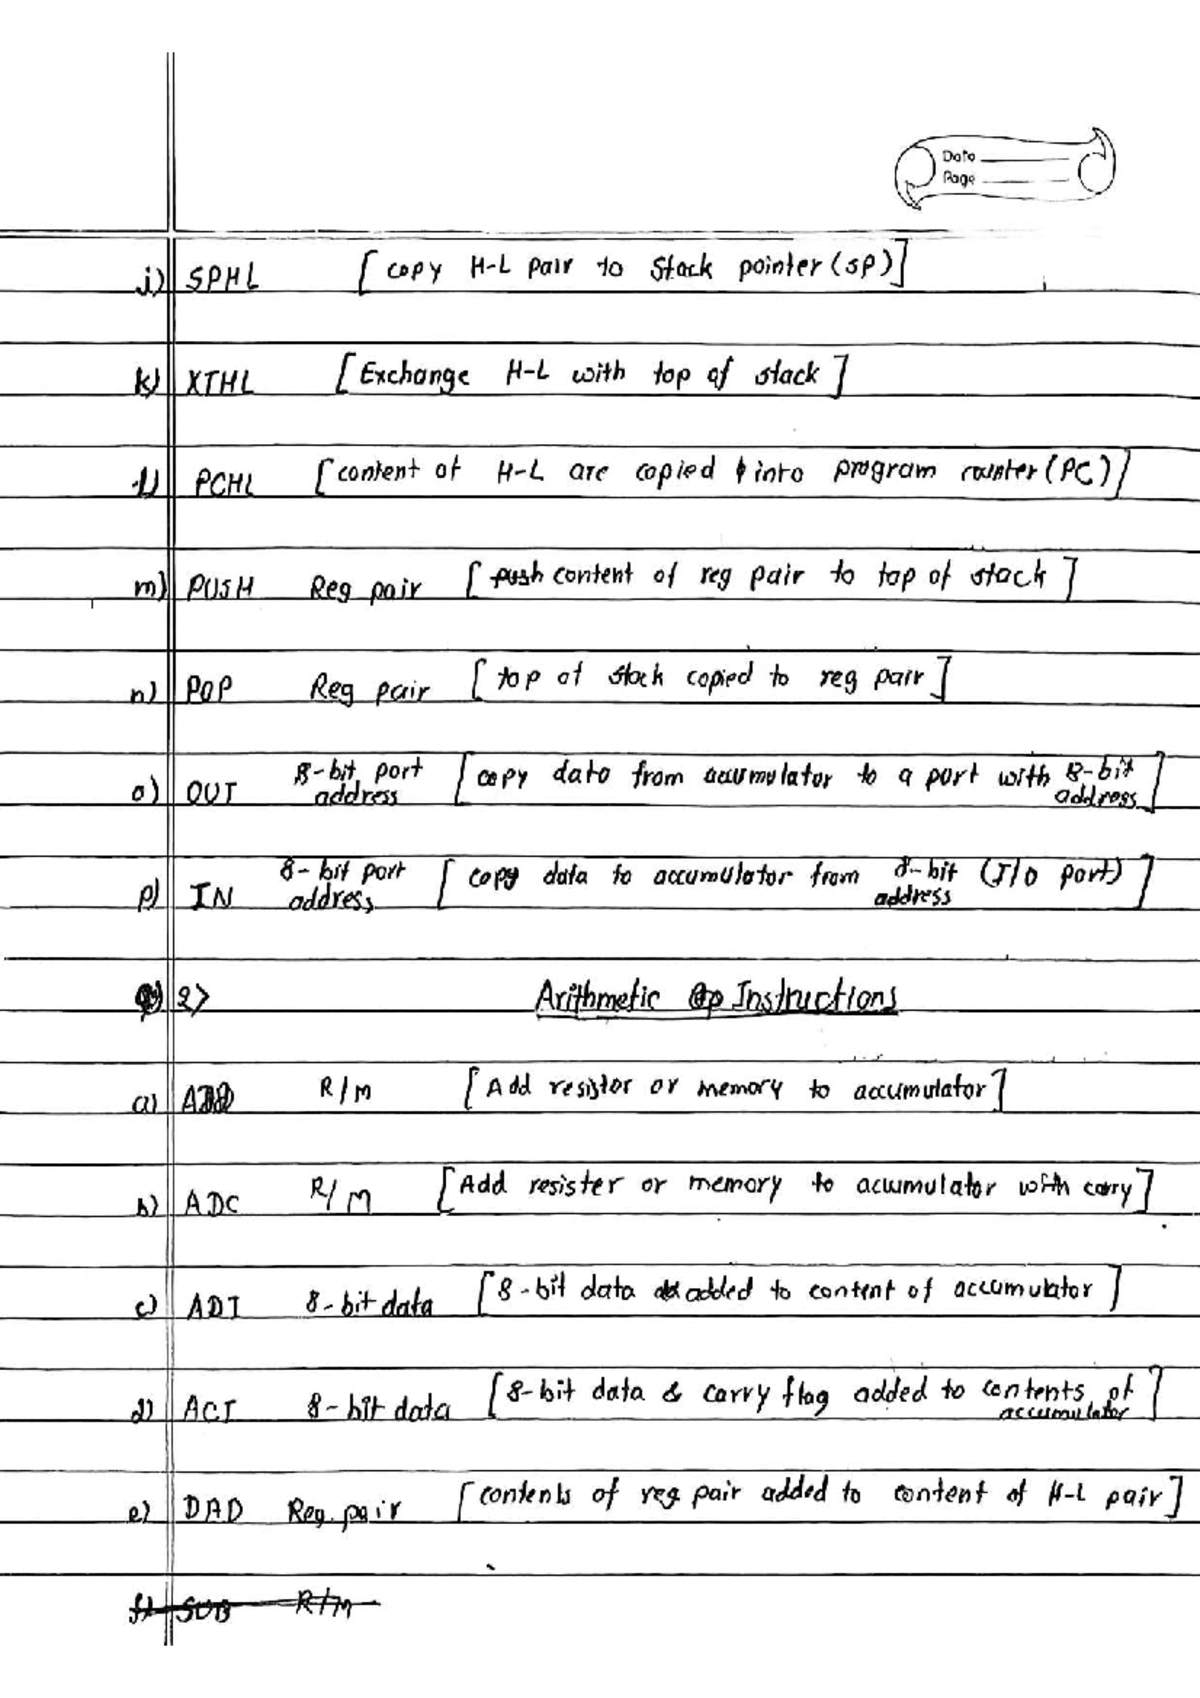 Date
Page
j) SPHL [copy H-L pair to Stack pointer (SP)]
k) XTHL [Exchange H-L with top of stack]
l) PCHL [content of H-L are copied into program counter (PC)]
m) PUSH Reg pair [push content of reg pair to top of stack]
n) POP Reg pair [top of stack copied to reg pair]
o) OUT 8-bit port address [copy data from accumulator to a port with 8-bit address]
p) IN 8-bit port address [copy data to accumulator from 8-bit address (I/O port)]
2> Arithmetic Instructions
a) ADD R/M [Add resistor or memory to accumulator]
b) ADC R/M [Add resister or memory to accumulator with carry]
c) ADI 8-bit data [8-bit data added to content of accumulator]
d) ACI 8-bit data [8-bit data & carry flag added to contents of accumulator]
e) DAD Reg. pair [contents of reg. pair added to content of H-L pair]
f) SUB R/M